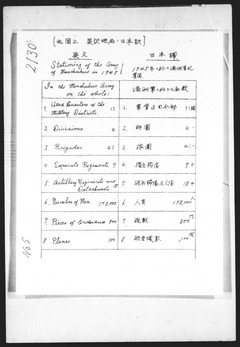 2130
(地図上 英訳地名・日本訳)
英文
日本譯
Stationing of the Army
of Manchukuo in 1945
1945年ニ於ケル満洲軍配置図
In the Manchukuo Army
on the whole:
満洲軍ニ於ケル全数
1. Head Quarters of the
Military Districts. 11
1. 軍管区司令部 11個
2. Divisions 4
2. 師團 4
3. Brigades 21
3. 旅團 21
4. Separate Regiments 9
4. 獨立聯隊 9
5. Artillery Regiments and
Detachments 18
5. 砲兵聯隊及支隊 18
6. Number of Men 158,000
6. 人員 158,000
7. Pieces of Ordnance 800
7. 砲数 800
8 Planes 100
8 航空機数 100
NG5